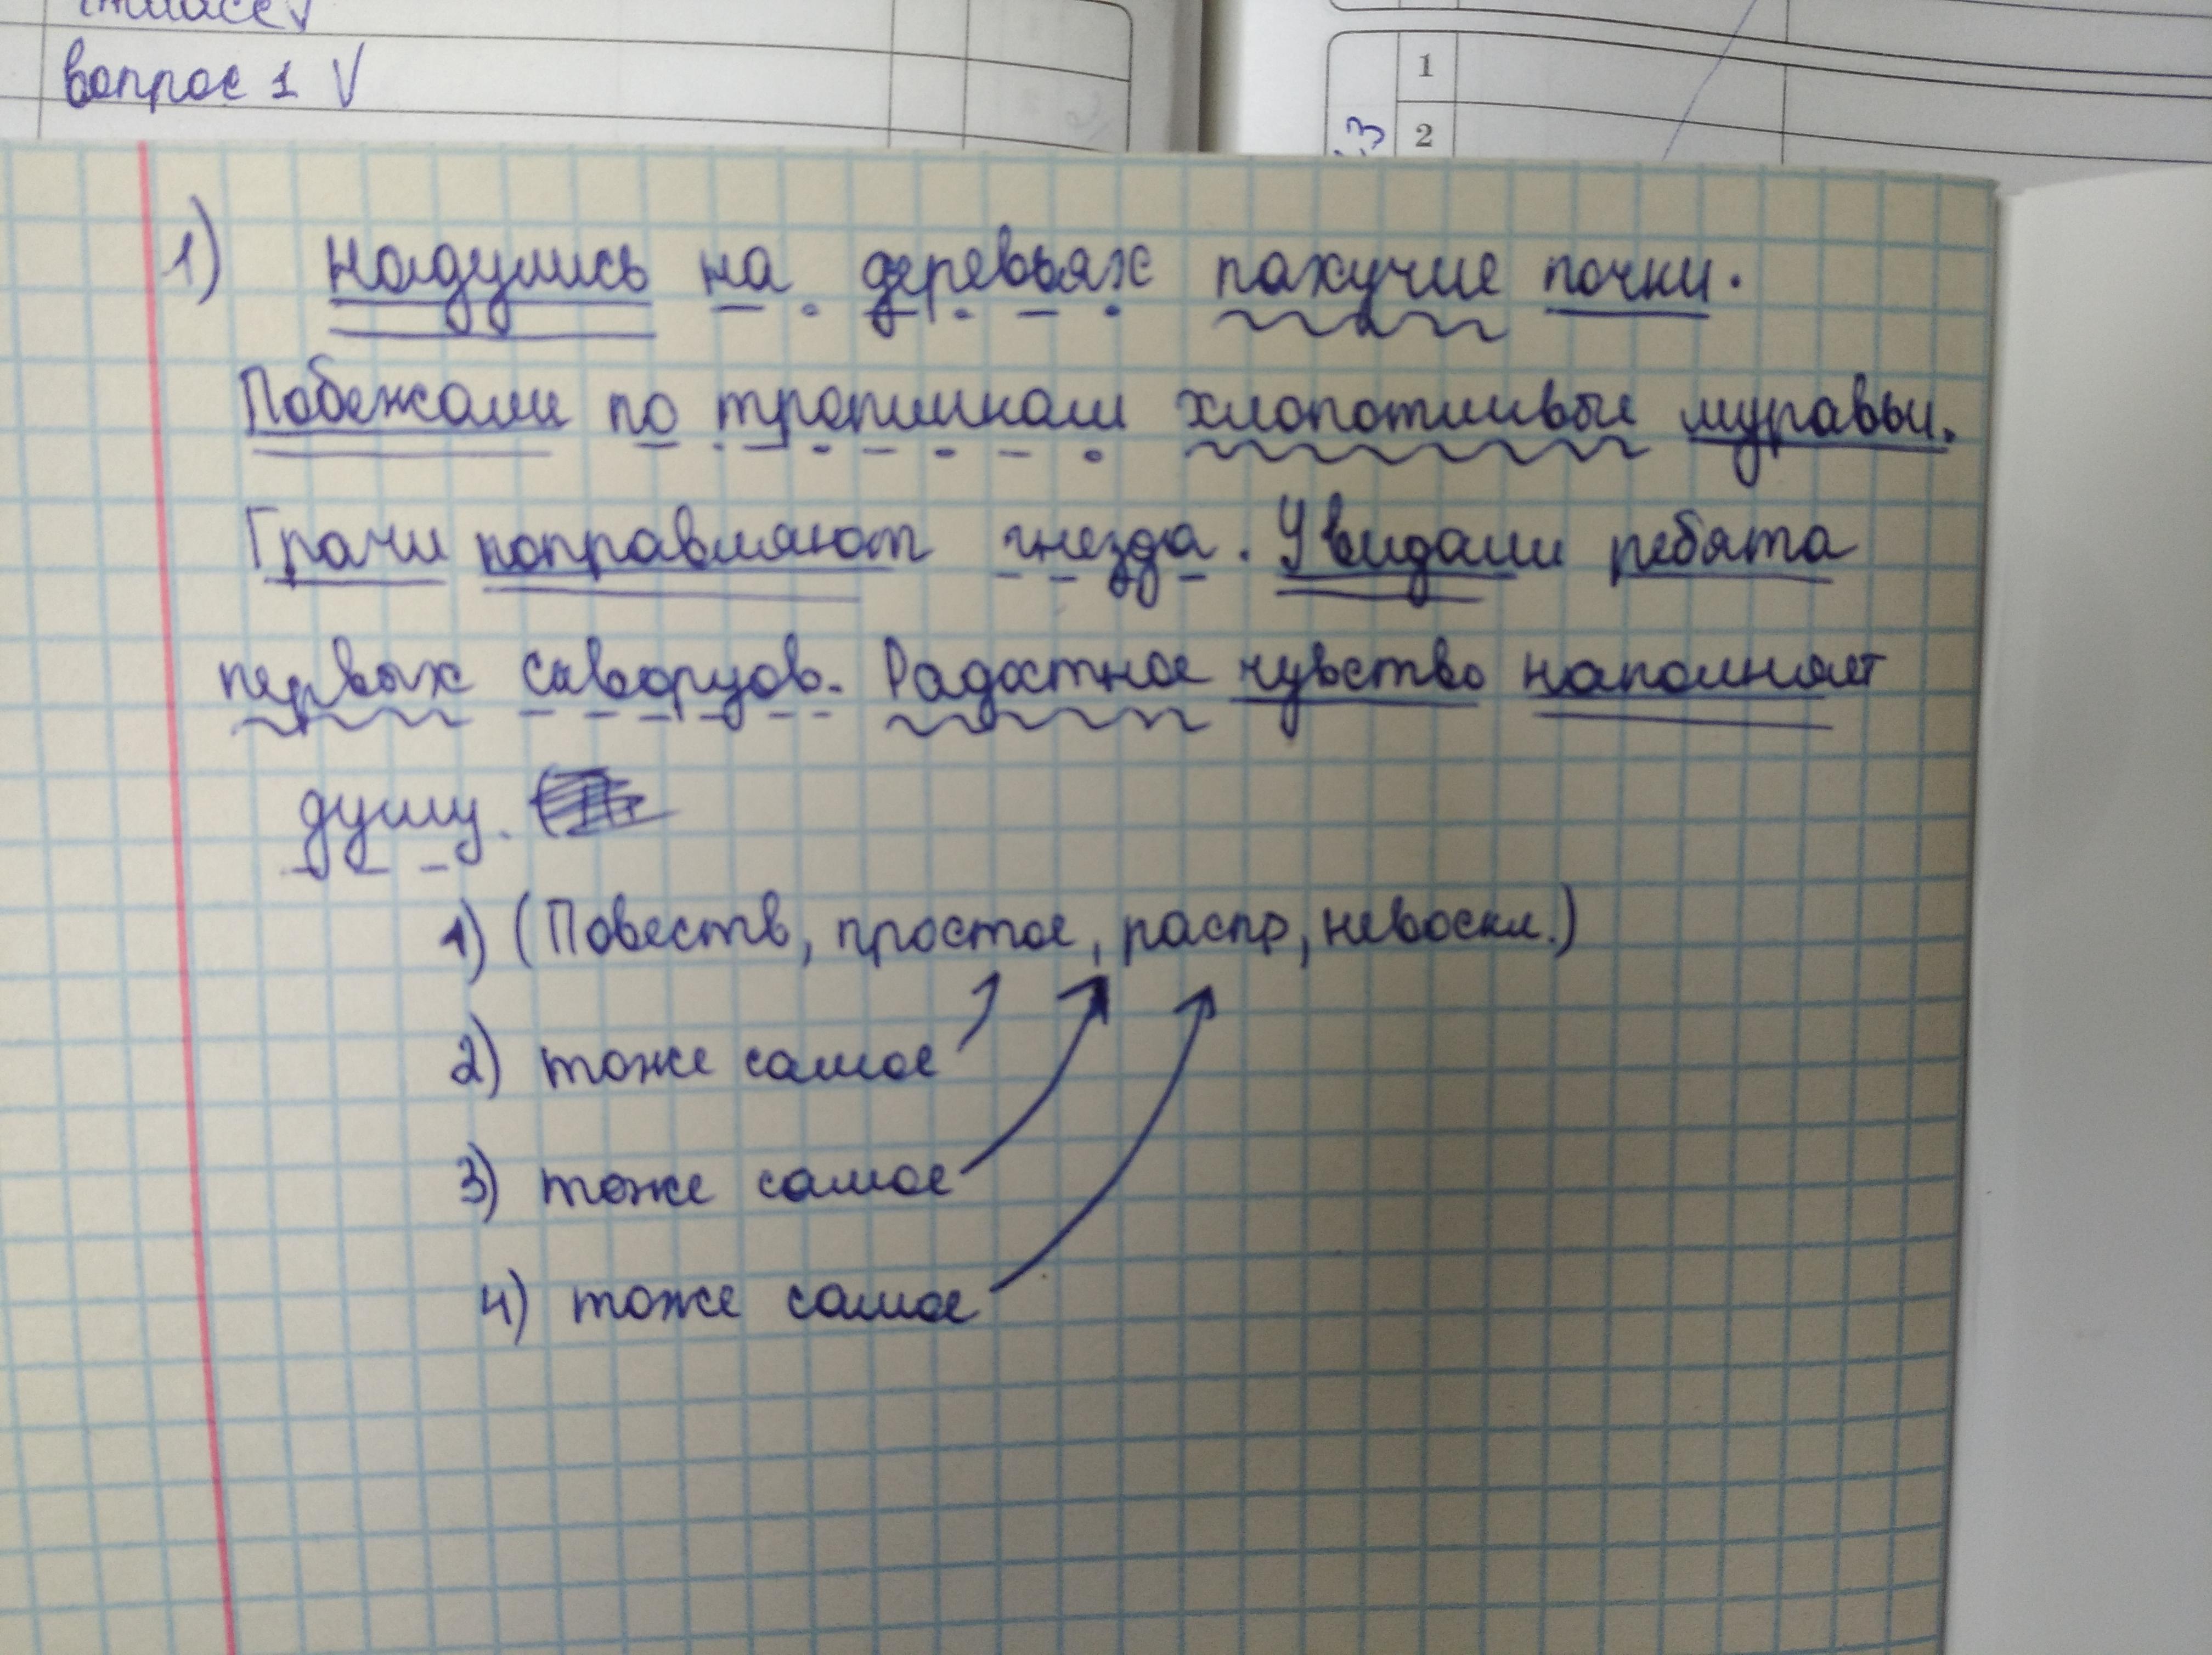 вопрос 1 V
1
2
1) Надулись на деревьях пахучие почки.
Побежали по тропинкам хлопотливые муравьи.
Грачи поправляют гнезда. Увидали ребята
первых скворцов. Радостное чувство наполняет
душу.
1) (Повеств, простое, распр, невоскл.)
2) тоже самое
3) тоже самое
4) тоже самое